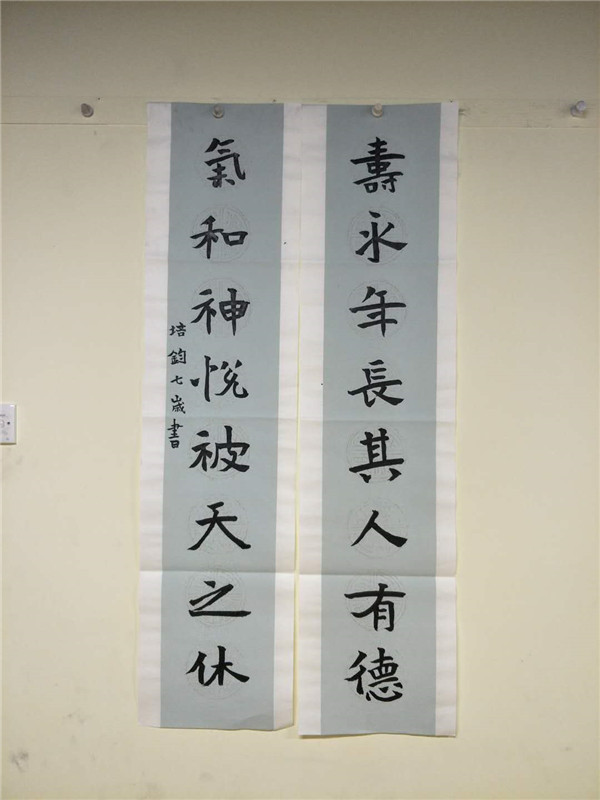 壽永年長其人有德
氣和神悅被天之休
培鈞七歲書